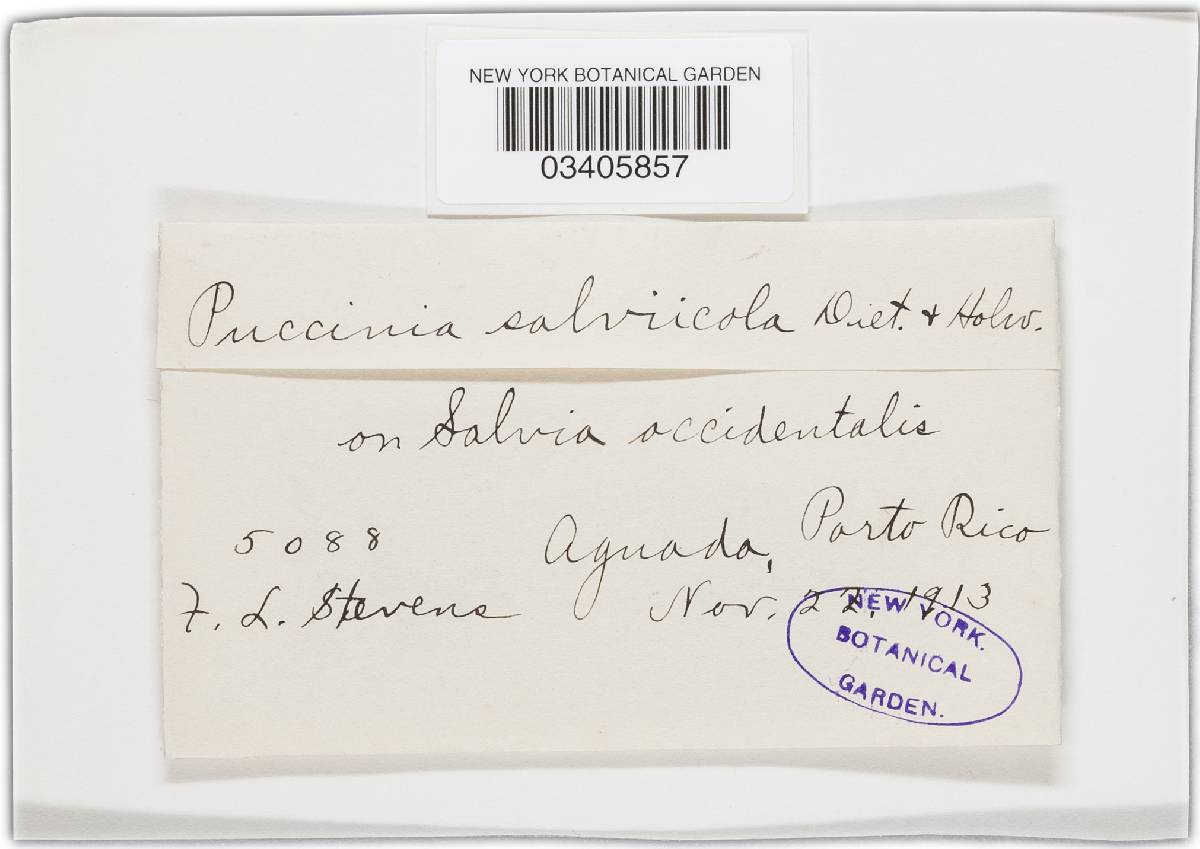 NEW YORK BOTANICAL GARDEN
03405857
Puccinia salviicola Diet. & Holw.
on Salvia occidentalis
5088 Aguada, Porto Rico
F. L. Stevens Nov. 22, 1913
NEW YORK.
BOTANICAL
GARDEN.